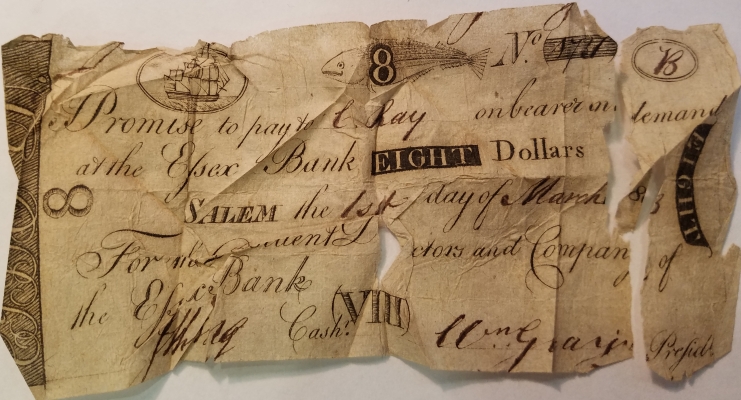 8 No.
B
I Promise to pay to C Ray on bearer on demand
at the Essex Bank EIGHT Dollars
EIGHT
8
SALEM the 1st day of March
For the President ctors and Compan of
the Essex Bank
Cashr. (VIII) Wm Gray Presidt.